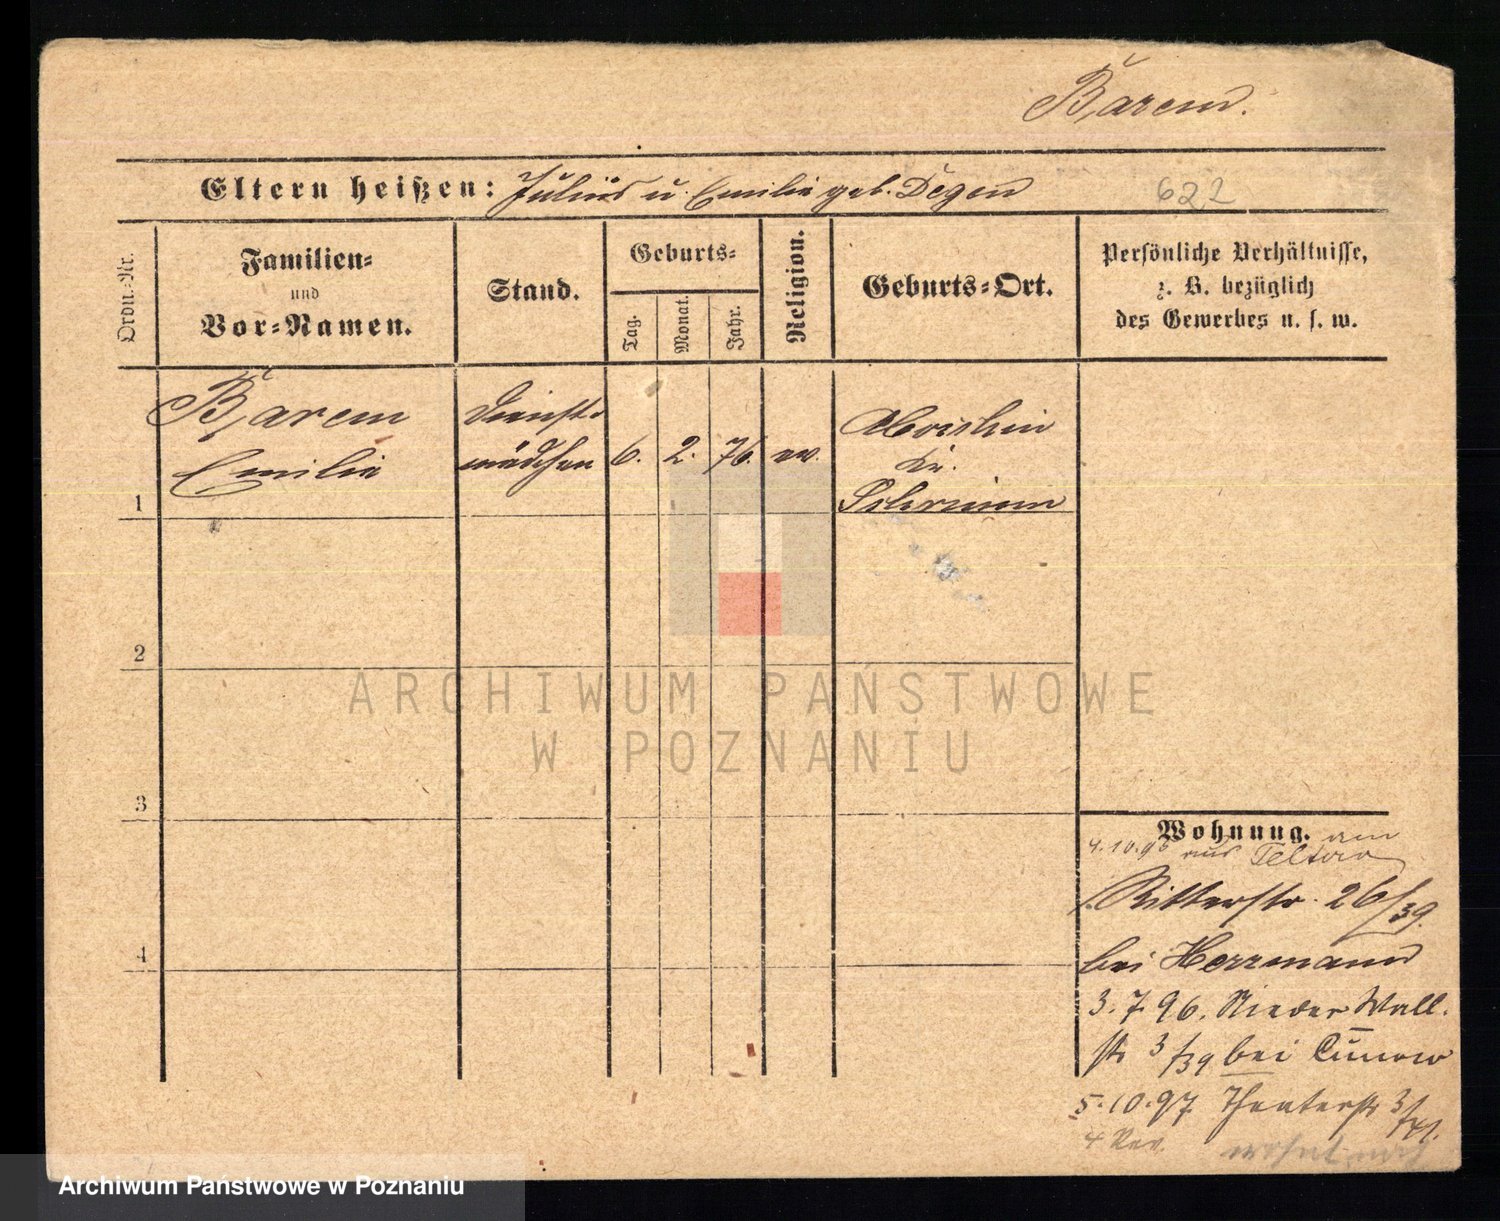 Barem.
Eltern heißen: Julius u. Emilie geb. Degen
622
Ordn.-Nr.
Familien-
und
Vor-Namen.
Stand.
Geburts-
Tag.
Monat.
Jahr.
Religion.
Geburts-Ort.
Persönliche Verhältnisse,
z. B. bezüglich
des Gewerbes u. s. w.
Barem
Emilie
Dienst-
mädchen
6.
2.
76.
ev.
Kr.
Schrimm
1
2
3
4
ARCHIWUM PAŃSTWOWE
W POZNANIU
Wohnung.
4.10.95 aus Teltow
Ritterstr. 26/39.
bei Herrmann
3.7.96. Nieder Wall.
str 3/39 bei Cunow
5.10.97 Theaterstr 3/41.
4 Rev.
wohnt noch
Archiwum Państwowe w Poznaniu